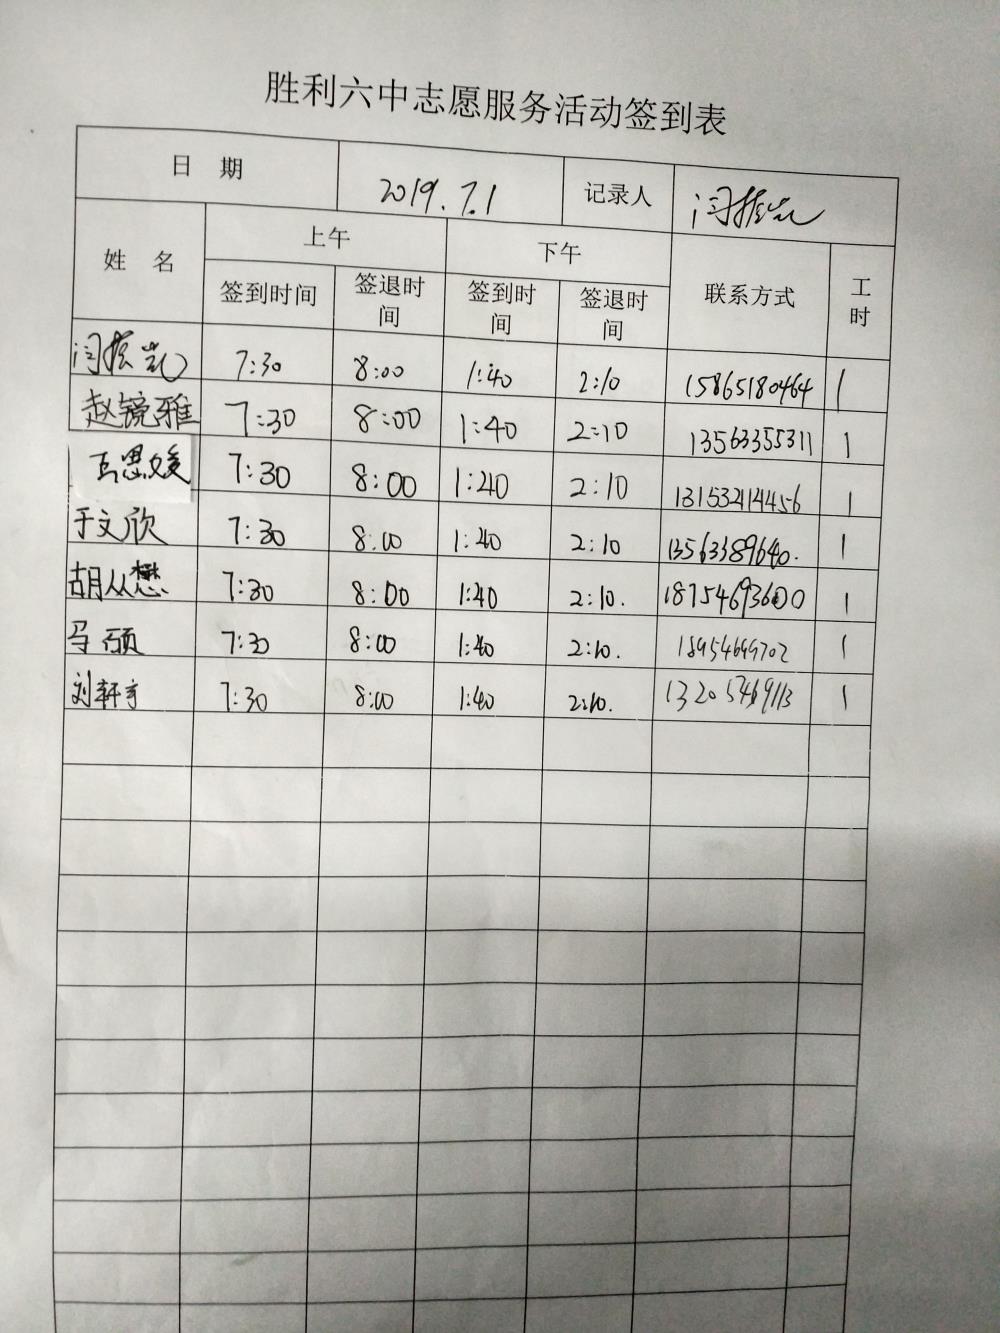 胜利六中志愿服务活动签到表
日 期 2019.7.1 记录人 闫振凯
姓 名 上午 下午 联系方式 工时
签到时间 签退时间 签到时间 签退时间
闫振凯 7:30 8:00 1:40 2:10 15865180464 1
赵镜雅 7:30 8:00 1:40 2:10 13563355311 1
思媛 7:30 8:00 1:40 2:10 13153214456 1
于文欣 7:30 8:00 1:40 2:10 13563389640. 1
胡从懋 7:30 8:00 1:40 2:10. 18754693600 1
马硕 7:30 8:00 1:40 2:10. 18954699702 1
刘轩宇 7:30 8:00 1:40 2:10. 13205469113 1